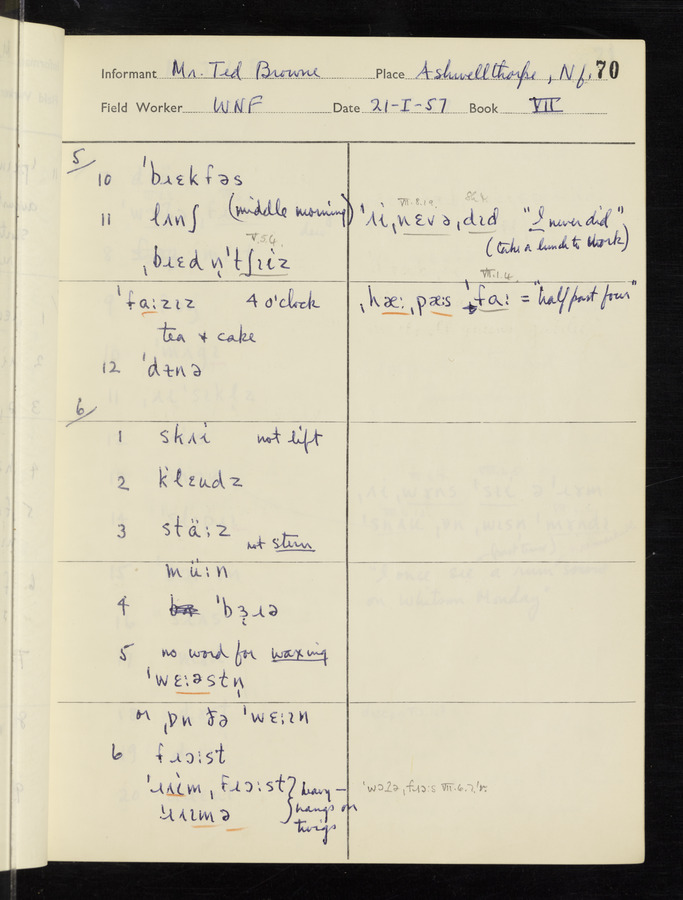 Informant Mr. Ted Browne Place Ashwellthorpe, Nf. 70
Field Worker WNF Date 21-I-57 Book VII
5/
10 ˈbɹɛkfəs
11 lʌnʃ (middle morning) ˈʌi̩ˌnɛvəˌdɪd "I never did"
(take a lunch to work)
V.5.4.
ˌbɹɛd n̩ˈtʃɪiz
VII.1.4.
ˈfaːzɪz 4 o'clock ˌhæːˌpæːs ˈfaː = "half past four"
tea & cake
12 ˈdɪnə
6/
1 skʌi not lift
2 klɛudz
3 stäːz not stern
müːn
4 ˈbɜ̣ɹə
5 no word for waxing
ˈwɛːəstn̩
or ˌɒn ðə ˈwɛːɪn
6 fɹɔːst
ˈɹʌimˌfɹɔːst } heavy - hangs on twigs
ˈɹʌimə